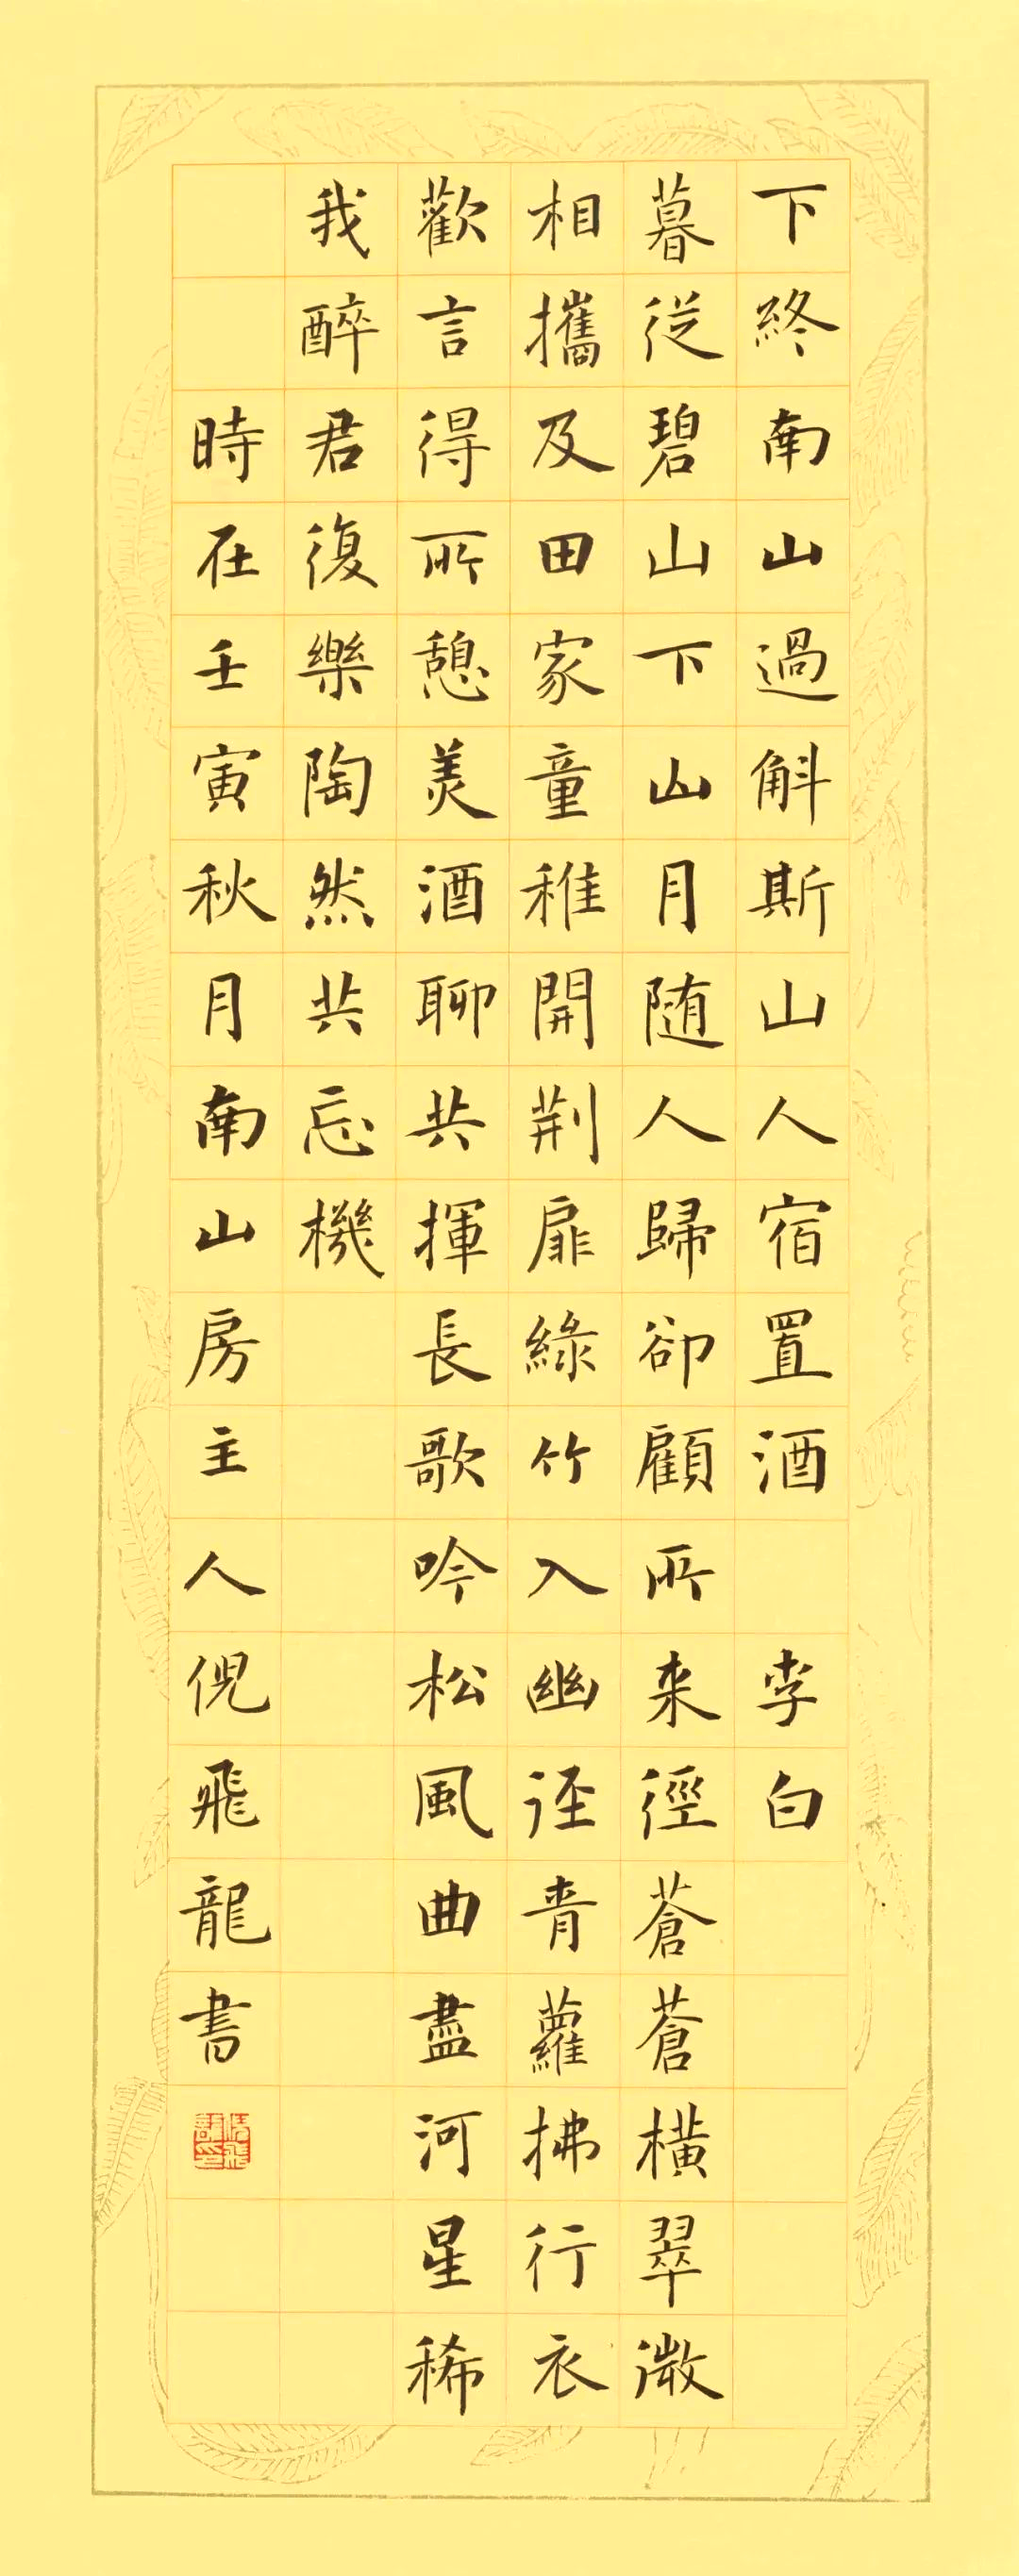 下終南山過斛斯山人宿置酒 李白
暮從碧山下山月随人歸卻顧所来徑蒼蒼橫翠微
相攜及田家童稚開荆扉綠竹入幽迳青蘿拂行衣
歡言得所憩美酒聊共揮長歌吟松風曲盡河星稀
我醉君復樂陶然共忘機
時在壬寅秋月南山房主人倪飛龍書